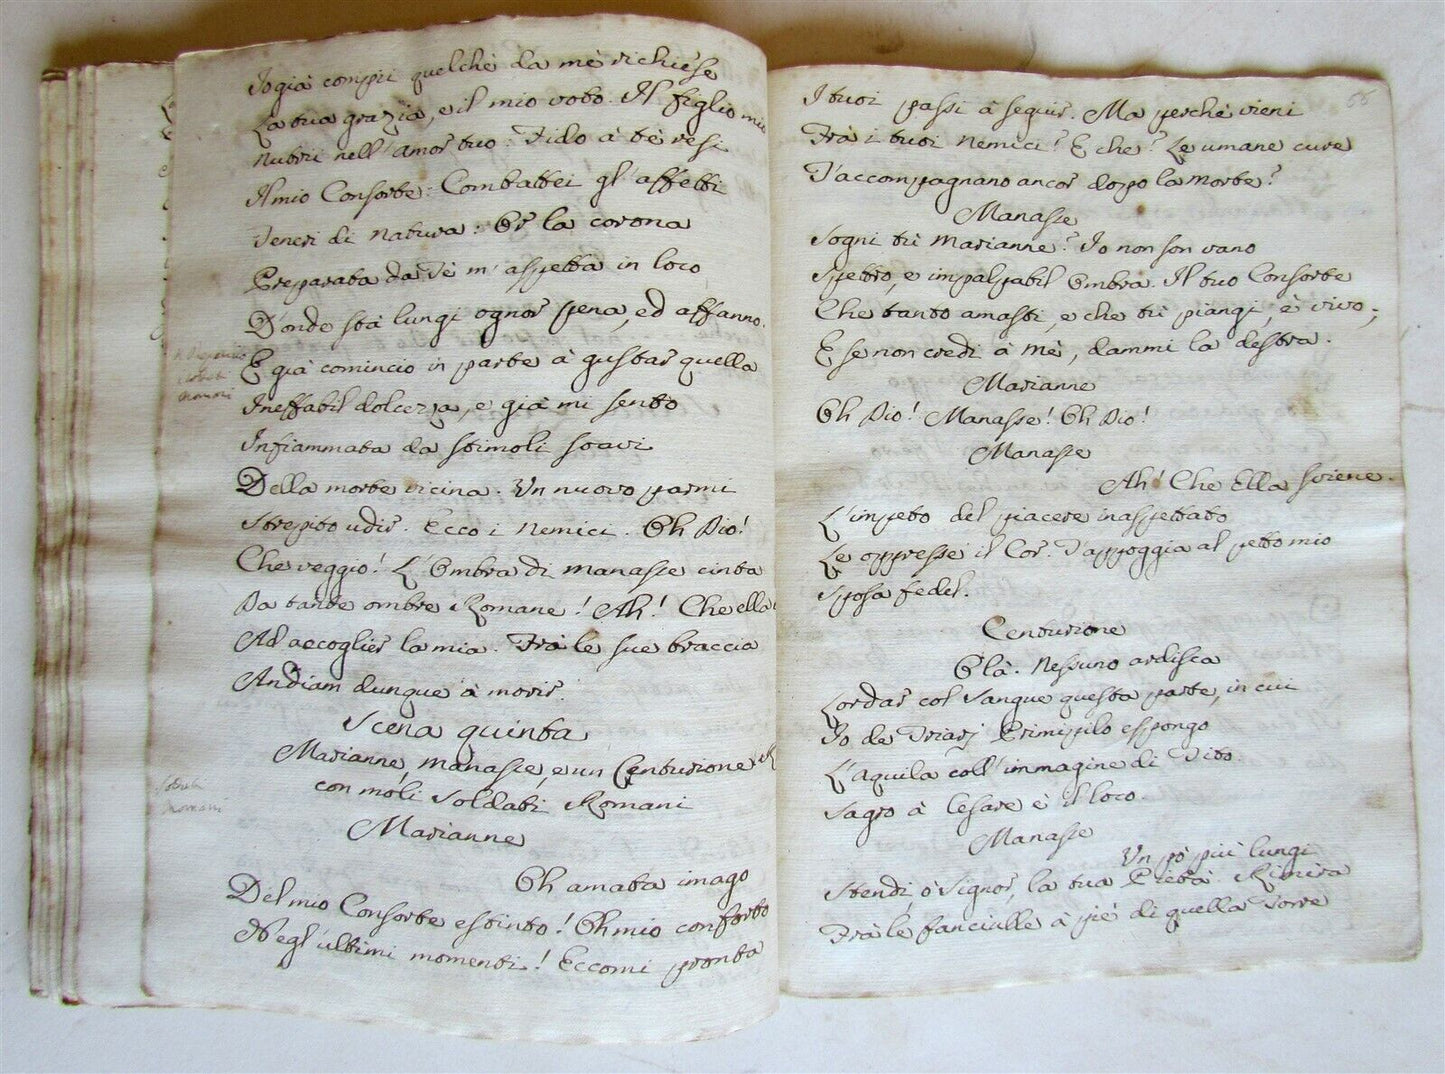 Io già compii quelchè da mè richiese
La tua grazia, e il mio voto. Il figlio mio
Nutrii nell'amor tuo: Fido à tè resi
Il mio Consorte: Combattei gl'affetti
Teneri di natura: Or la corona
Preparata da Tè m'aspetta in loco
D'onde stà lungi ognor pena, ed affanno.
E già comincio in parte à gustar quella
Ineffabil dolcezza, e già mi sento
Infiammata da stimoli soavi
Della morte vicina. Un nuovo parmi
Strepito udir. Ecco i Nemici. Oh Dio!
Che veggio! L'Ombra di Manasse cinta
Da tante ombre Romane! Ah! Che ella
Ad accoglier la mia. Frà le sue braccia
Andiam dunque à morir.
Scena quinta
Marianne, Manasse, e un Centurione
con molti Soldati Romani
Marianne
Oh amata imago
Del mio Consorte estinto! Oh mio conforto
Negl'ultimi momenti! Eccomi pronta
Romani
Soldati
Romani
66
I tuoi passi à seguir. Ma perchè vieni
Frà i tuoi Nemici? E che? Le umane cure
T'accompagnano ancor dopo la morte?
Manasse
Sogni tù Marianne? Io non son vano
Spettro, e impalpabil Ombra. Il tuo Consorte
Che tanto amasti, e che tù piangi, è vivo;
E se non credi à mè, dammi la destra.
Marianne
Oh Dio! Manasse! Oh Dio!
Manasse
Ah! Che Ella sviene.
L'impeto del piacere inaspettato
Le oppresse il Cor. T'appoggia al petto mio
Sposa fedel.
Centurione
Olà. Nessuno ardisca
Lordar col Sangue questa parte, in cui
Io de Triarj Primipilo espongo
L'Aquila coll'immagine di Tito.
Sagro à Cesare è il loco.
Manasse
Un pò più lungi
Stendi, ò Signor, la tua Pietà. Rimira
Frà le fanciulle à piè di quella Torre